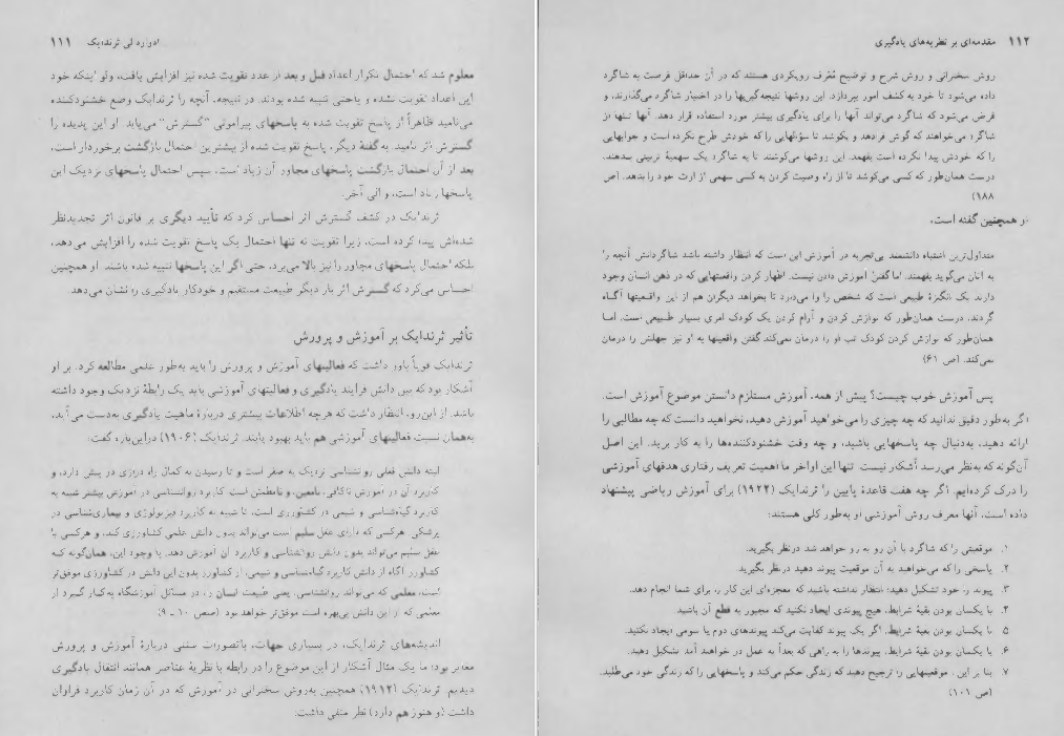 ادوارد لی ثرندایک ۱۱۱
معلوم شد که احتمال تکرار اعداد قبل و بعد از عدد تقویت شده نیز افزایش یافت، ولو اینکه خود
این اعداد تقویت نشده و یا حتی تنبیه شده بودند. در نتیجه، آنچه را ثرندایک وضع خشنودکننده
می‌نامید ظاهراً از پاسخ تقویت شده به پاسخهای پیرامونی "گسترش" می‌یابد. او این پدیده را
گسترش اثر نامید. به گفتهٔ دیگر، پاسخ تقویت شده از بیشترین احتمال بازگشت برخوردار است،
بعد از آن احتمال بازگشت پاسخهای مجاور آن زیاد است، سپس احتمال پاسخهای نزدیک این
پاسخها زیاد است، و الی آخر.
ثرندایک در کشف گسترش اثر احساس کرد که تأیید دیگری بر قانون اثر تجدیدنظر
شده‌اش پیدا کرده است، زیرا تقویت نه تنها احتمال یک پاسخ تقویت شده را افزایش می‌دهد،
بلکه احتمال پاسخهای مجاور را نیز بالا می‌برد، حتی اگر این پاسخها تنبیه شده باشند. او همچنین
احساس می‌کرد که گسترش اثر بار دیگر طبیعت مستقیم و خودکار یادگیری را نشان می‌دهد.
تأثیر ثرندایک بر آموزش و پرورش
ثرندایک قویاً باور داشت که فعالیتهای آموزش و پرورش را باید به‌طور علمی مطالعه کرد. بر او
آشکار بود که بین دانش فرایند یادگیری و فعالیتهای آموزشی باید یک رابطهٔ نزدیک وجود داشته
باشد. از این‌رو، انتظار داشت که هرچه اطلاعات بیشتری دربارهٔ ماهیت یادگیری به‌دست می‌آید،
به‌همان نسبت فعالیتهای آموزشی هم باید بهبود یابند. ثرندایک (۱۹۰۶) دراین‌باره گفت:
البته دانش فعلی روانشناسی نزدیک به صفر است و تا رسیدن به کمال راه درازی در پیش دارد، و
کاربرد آن در آموزش ناکافی، نامعین، و نامطمئن است. کاربرد روانشناسی در آموزش بیشتر شبیه به
کاربرد گیاه‌شناسی و شیمی در کشاورزی است، تا شبیه به کاربرد فیزیولوژی و بیماری‌شناسی در
پزشکی. هرکسی که دارای عقل سلیم است می‌تواند بدون دانش علمی کشاورزی کند، و هرکسی با
عقل سلیم می‌تواند بدون دانش روانشناسی و کاربرد آن آموزش دهد. با وجود این، همان‌گونه که
کشاورز آگاه از دانش کاربرد گیاه‌شناسی و شیمی، از کشاورز بدون این دانش در کشاورزی موفق‌تر
است، معلمی که می‌تواند روانشناسی، یعنی طبیعت انسان را، در مسائل آموزشگاه به‌کار گیرد از
معلمی که از این دانش بی‌بهره است موفق‌تر خواهد بود. (صص ۱۰ ـ ۹)
اندیشه‌های ثرندایک، در بسیاری جهات، باتصورات سنتی دربارهٔ آموزش و پرورش
مغایر بود؛ ما یک مثال آشکار از این موضوع را در رابطه با نظریهٔ عناصر همانند انتقال یادگیری
دیدیم. ثرندایک (۱۹۱۲) همچنین به‌روش سخنرانی در آموزش که در آن زمان کاربرد فراوان
داشت (و هنوز هم دارد) نظر منفی داشت:
۱۱۲ مقدمه‌ای بر نظریه‌های یادگیری
روش سخنرانی و روش شرح و توضیح مُعَرف رویکردی هستند که در آن حداقل فرصت به شاگرد
داده می‌شود تا خود به کشف امور بپردازد. این روشها نتیجه‌گیریها را در اختیار شاگرد می‌گذارند، و
فرض می‌شود که شاگرد می‌تواند آنها را برای یادگیری بیشتر مورد استفاده قرار دهد. آنها تنها از
شاگرد می‌خواهند که گوش فرادهد و بکوشد تا سؤالهایی را که خودش طرح نکرده است و جوابهایی
را که خودش پیدا نکرده است بفهمد. این روشها می‌کوشند تا به شاگرد یک سهمیهٔ تربیتی بدهند،
درست همان‌طور که کسی می‌کوشد تا از راه وصیت کردن به کسی سهمی از ارث خود را بدهد. (ص
۱۸۸)
او همچنین گفته است:
متداول‌ترین اشتباه دانشمند بی‌تجربه در آموزش این است که انتظار داشته باشد شاگردانش آنچه را
به آنان می‌گوید بفهمند. اما گفتن آموزش دادن نیست. اظهار کردن واقعیتهایی که در ذهن انسان وجود
دارند یک انگیزهٔ طبیعی است که شخص را وا می‌دارد تا بخواهد دیگران هم از این واقعیتها آگاه
گردند، درست همان‌طور که نوازش کردن و آرام کردن یک کودک امری بسیار طبیعی است. اما
همان‌طور که نوازش کردن کودک تب او را درمان نمی‌کند گفتن واقعیتها به او نیز جهلش را درمان
نمی‌کند. (ص ۶۱)
پس آموزش خوب چیست؟ پیش از همه، آموزش مستلزم دانستن موضوع آموزش است.
اگر به‌طور دقیق ندانید که چه چیزی را می‌خواهید آموزش دهید، نخواهید دانست که چه مطالبی را
ارائه دهید، به‌دنبال چه پاسخهایی باشید، و چه وقت خشنودکننده‌ها را به کار برید. این اصل
آن‌گونه که به‌نظر می‌رسد آشکار نیست. تنها این اواخر ما اهمیت تعریف رفتاری هدفهای آموزشی
را درک کرده‌ایم. اگر چه هفت قاعدهٔ پایین را ثرندایک (۱۹۲۲) برای آموزش ریاضی پیشنهاد
داده است، آنها معرف روش آموزشی او به‌طور کلی هستند:
۱. موقعیتی را که شاگرد با آن رو به رو خواهد شد درنظر بگیرید.
۲. پاسخی را که می‌خواهید به آن موقعیت پیوند دهید درنظر بگیرید.
۳. پیوند را خود تشکیل دهید؛ انتظار نداشته باشید که معجزه‌ای این کار را برای شما انجام دهد.
۴. با یکسان بودن بقیهٔ شرایط، هیچ پیوندی ایجاد نکنید که مجبور به قطع آن باشید.
۵. با یکسان بودن بقیهٔ شرایط، اگر یک پیوند کفایت می‌کند پیوندهای دوم یا سومی ایجاد نکنید.
۶. با یکسان بودن بقیهٔ شرایط، پیوندها را به راهی که بعداً به عمل در خواهند آمد تشکیل دهید.
۷. بنا بر این، موقعیتهایی را ترجیح دهید که زندگی حکم می‌کند و پاسخهایی را که زندگی خود می‌طلبد.
(ص ۱۰۱)